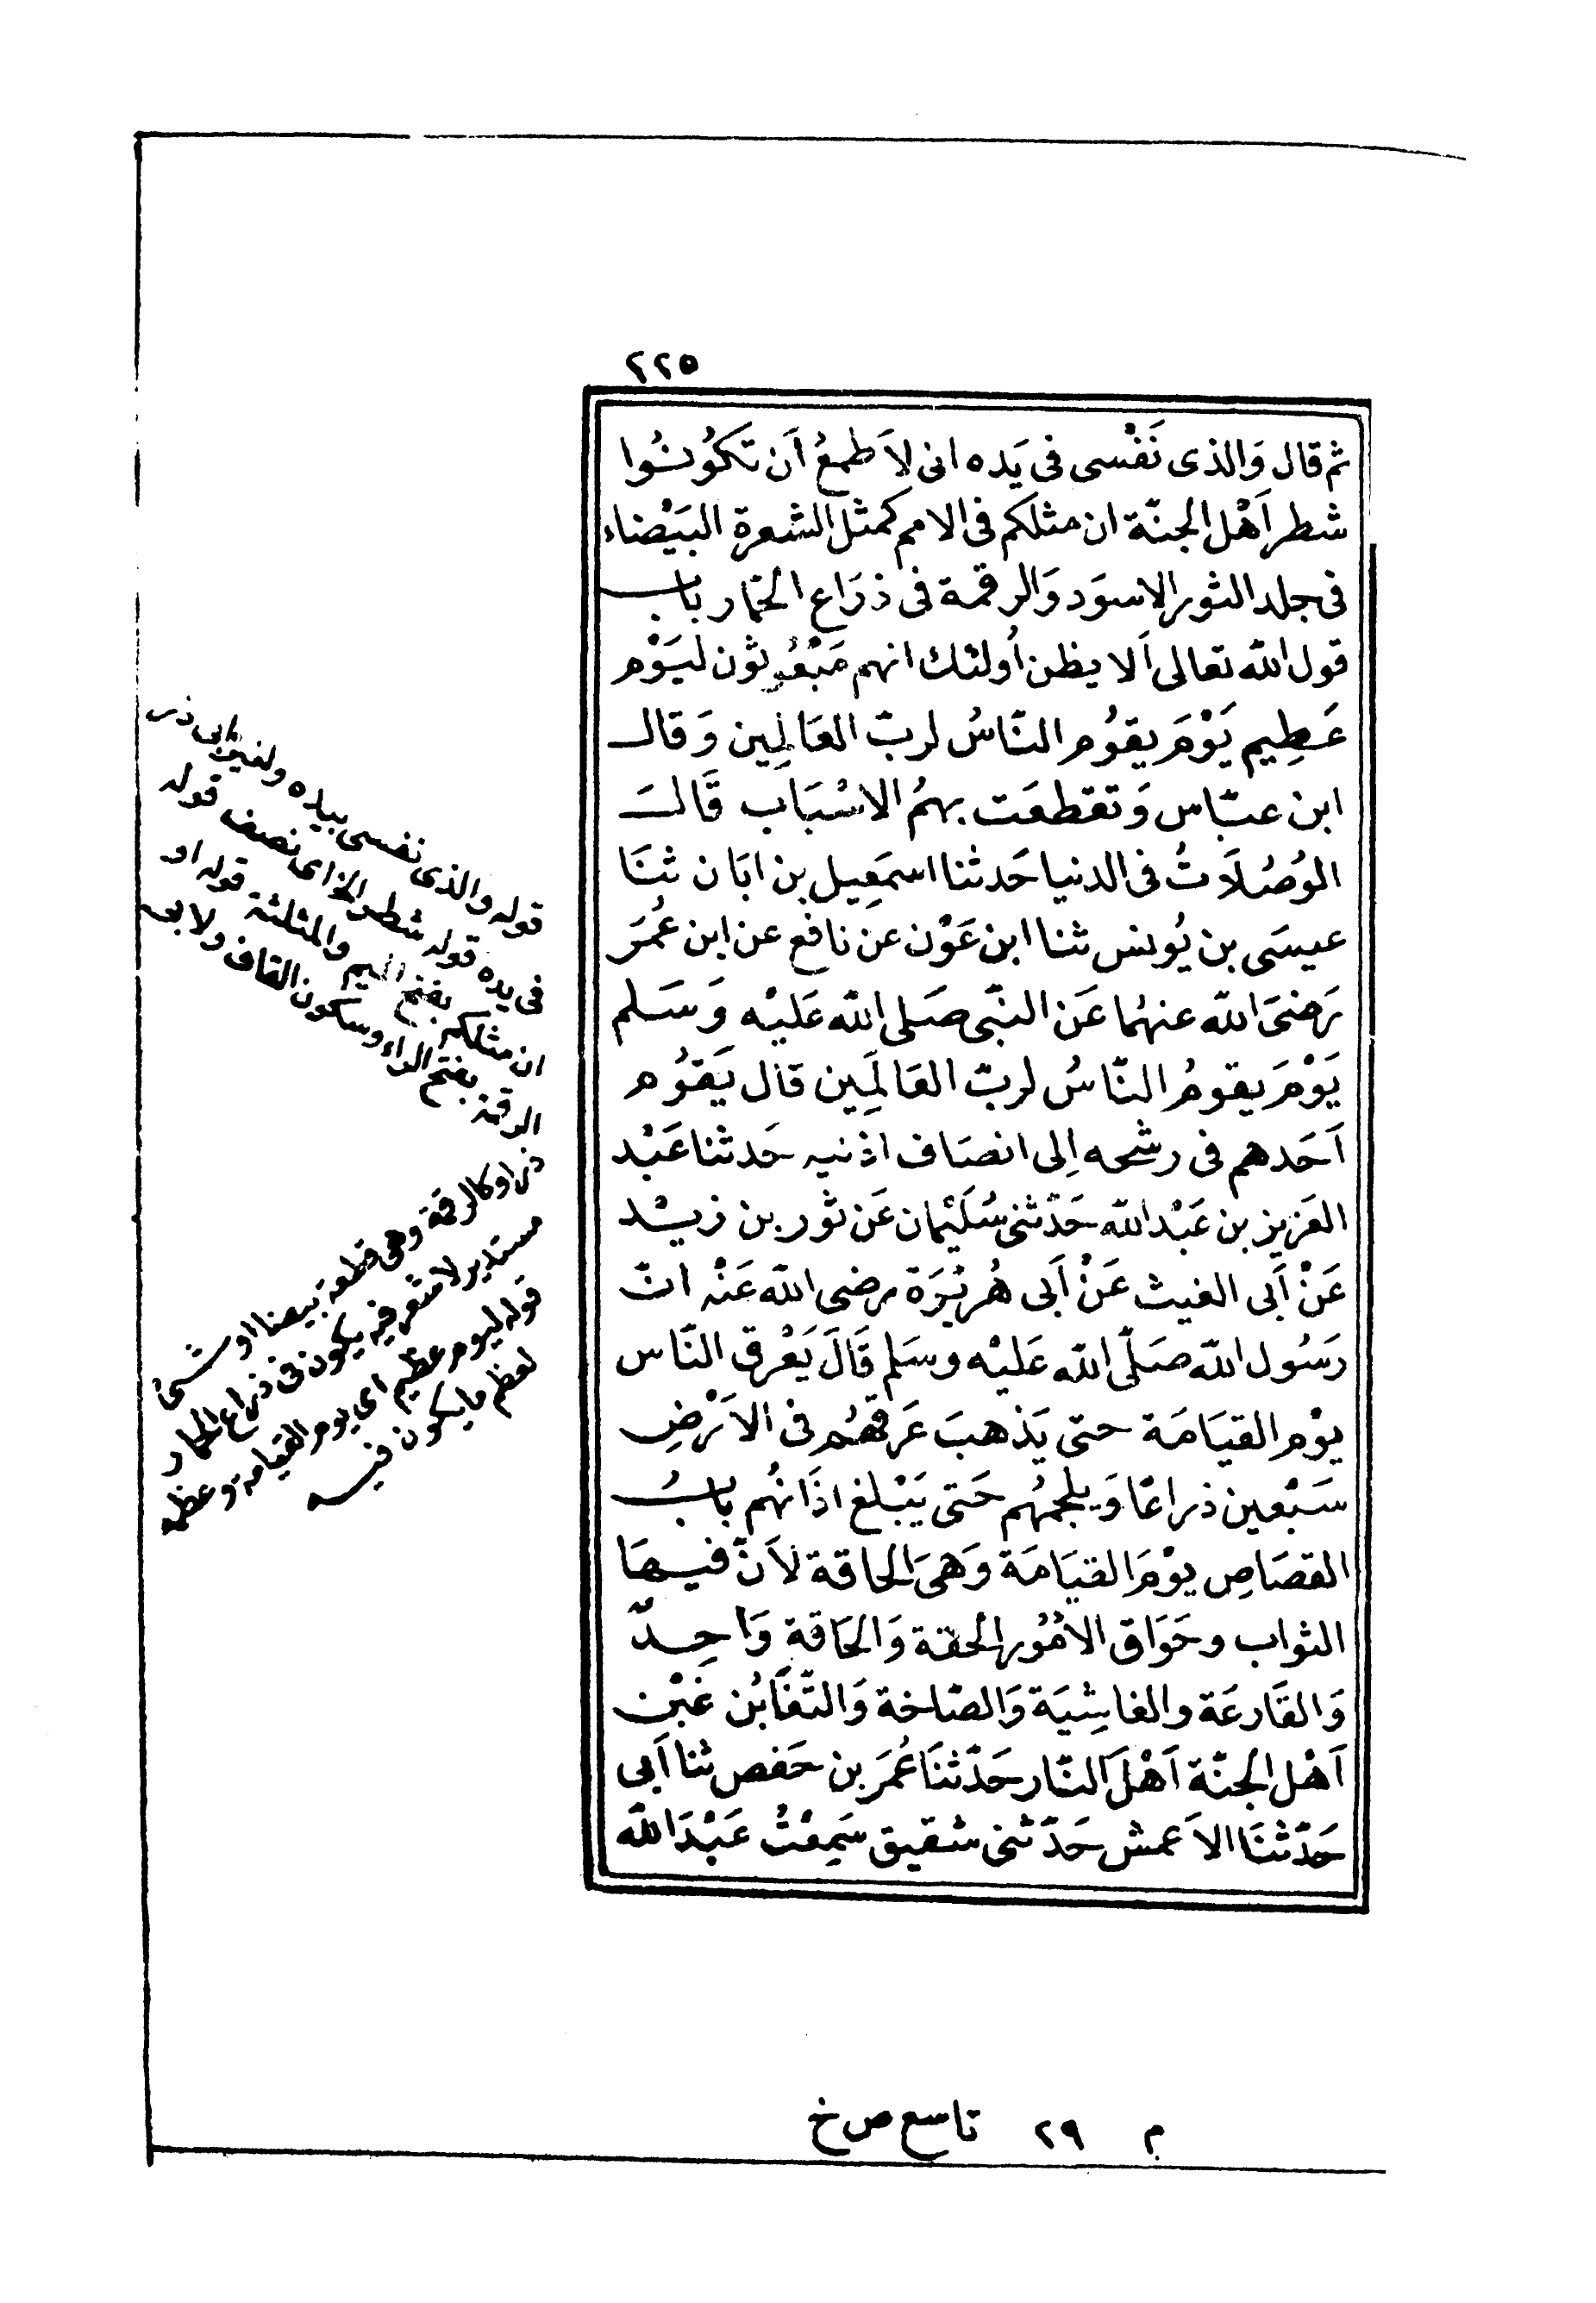 ٢٢٥
ثم قال وَالذى نَفْسى فى يَده انى لاَ طمعُ اَن تَكُونُوا
شطر اَهْل الجنّة ان مثلكم فى الامم كمثل الشعرة البَيْضاء
فى جلد الثور الاسوَد وَالرقمة فى ذرَاع الحمار باب
قول الله تعالى اَلا يظن اُولئك انهم مَبْعُوثون ليَوْم
عَظِيم يَوْمَ يقوُم النّاسُ لربّ العَالمِين وَقال
ابن عبّاس وَتقطعَت بهمُ الاسْبَاب قَالَ
الوُصُلاَتُ فى الدنيا حَدثنا اسمَعِيل بن ابَان ثنَا
عيسَى بن يُونس ثنا ابن عَوْن عن نافع عن ابن عُمَر
رَضىَ الله عنهُما عَن النّبى صَلى الله عَليْه وَسَلم
يَوْمَ يقومُ النّاسُ لربّ العَالمَِين قال يَقوُم
اَحَدهم فى رشحه اِلى انصَاف اذنيه حَدثنا عَبْد
العَزيز بن عَبْد الله حَدّثنى سُلَيْمان عَن ثور بن زيْد
عَنْ اَبى الغيث عَنْ اَبى هُريْرَة رضى الله عَنْه انّ
رَسُول الله صَلّى الله عَليْه وسَلم قَالَ يَعْرق النّاس
يوْم القيَامَة حتى يَذهبَ عَرقهُم فى الاَرْضِ
سَبْعين ذراعًا وَيلجمهُم حَتى يَبْلغ اذَانهُم بابُ
القصَاصِ يوْمَ القيَامَة وَهىَ الحاقة لاَنّ فيهَا
الثواب وحَوَاق الامُور الحقة وَالحَاقة وَاحِدّ
وَالقَارعَة والغاشِيَة وَالصّاخة وَالتّغَابُن غَبْن
اَهْل الجنّة اَهْلَ النّار حَدّثنَا عُمَر بن حَفص ثنا اَبى
حَدّثنَا الاَعمش حَدّثنى شقيق سَمِعْتُ عَبْدَ الله
قوله والذى نفسى بيده ولغير ابى ذر
فى يده قوله شطر الخ اى نصف قوله
ان مثلكم بفتح الميم والمثلثة قوله او
الرقمة بفتح الراء وسكون القاف ولابى
ذر اوكالرقمة وهى قطعة بيضا او شئ
مستدير لا شعر فيه يكون فى ذراع الحمار
قوله ليوم عظيم اى يوم القيامة وعظمه
لعظم ما يكون فيه
م ٢٩ تاسع ص خ